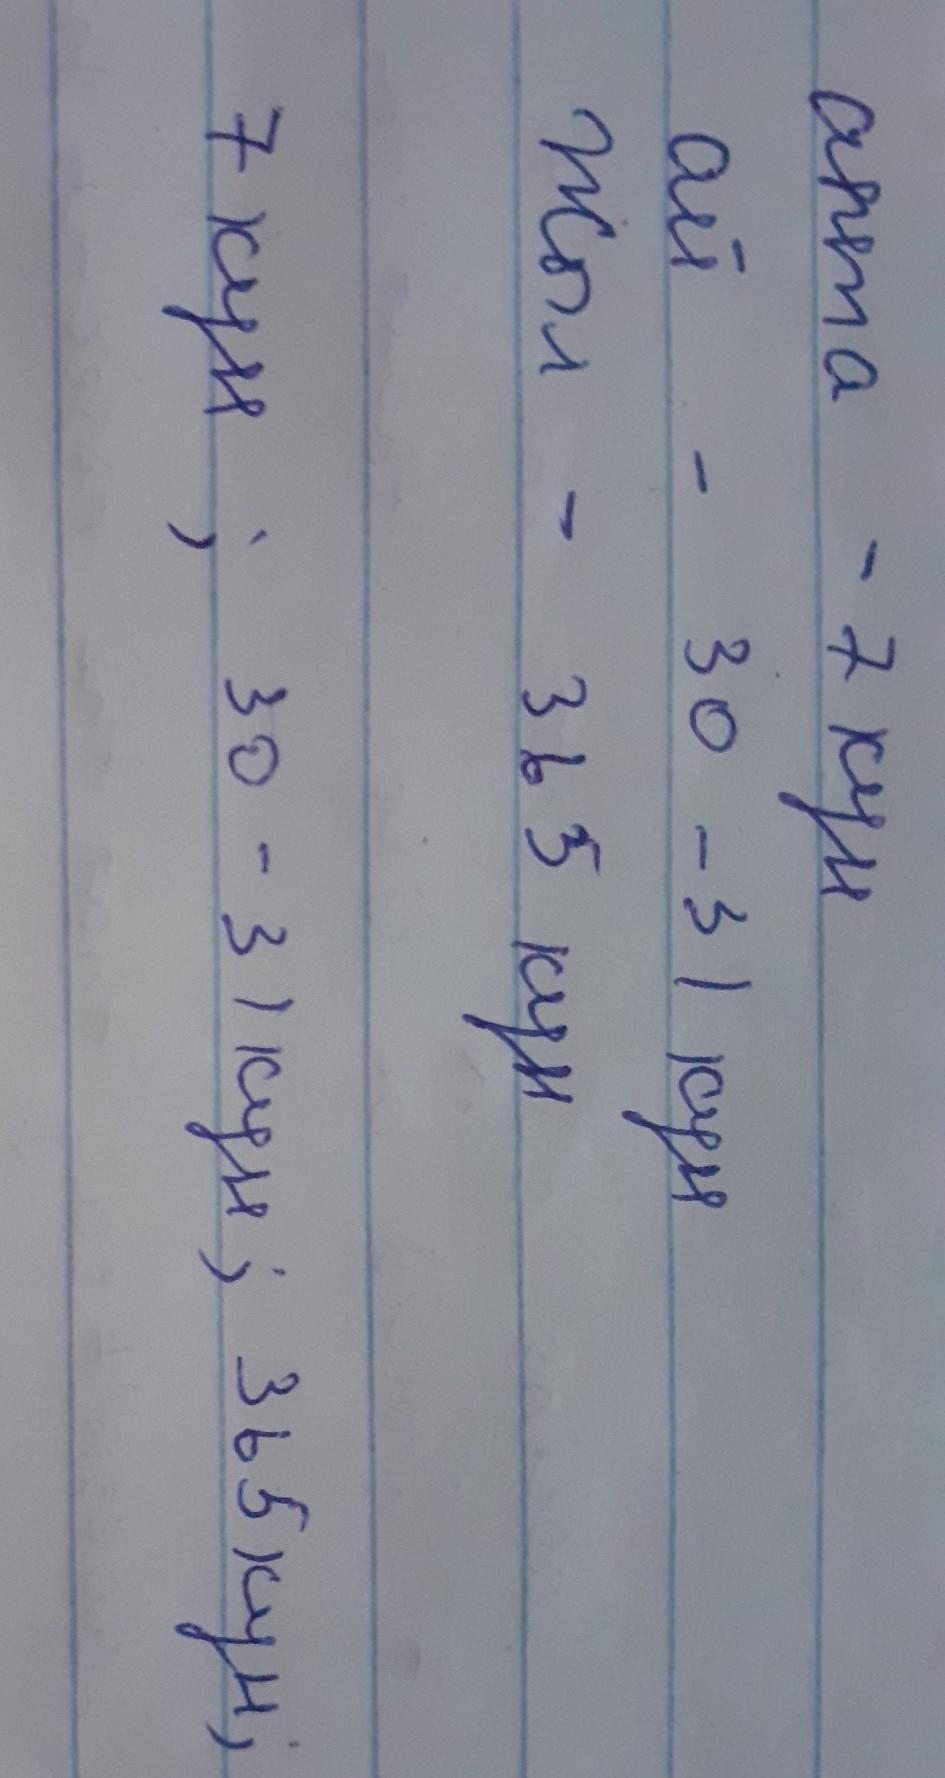 апта - 7 кун
ай - 30 - 31 кун
Жыл - 365 кун
7 кун ; 30 - 31 кун ; 365 кун ;